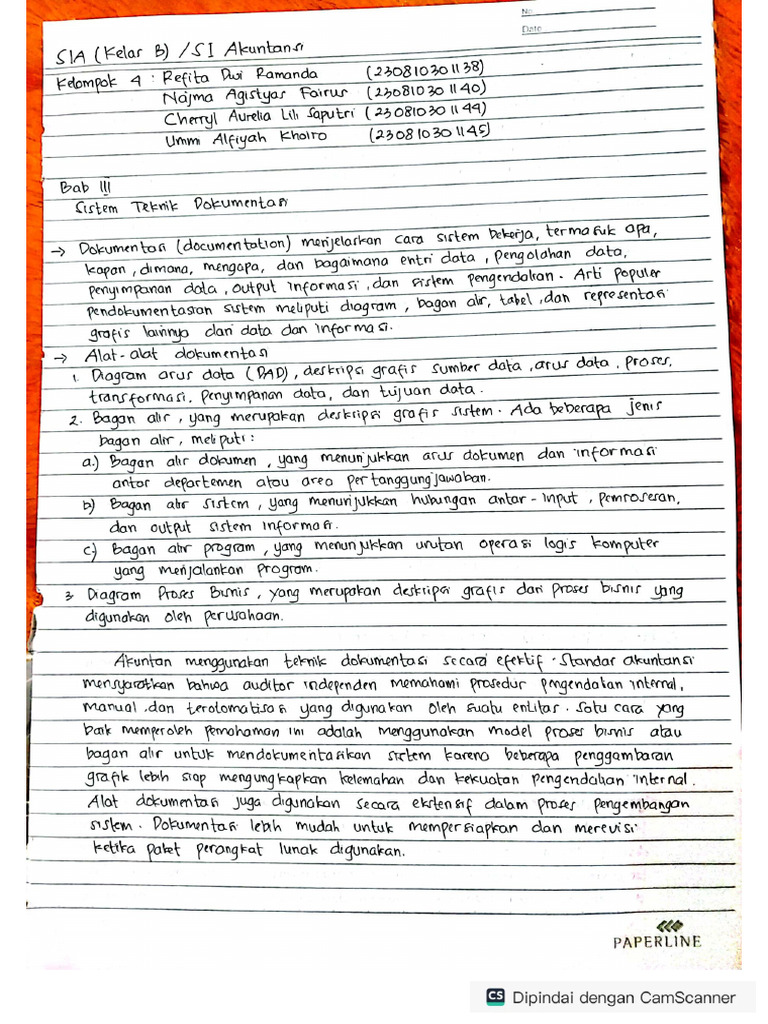 No
Date
SIA (Kelas B) / S1 Akuntansi
Kelompok 4 : Refita Dwi Ramanda (230810301138)
Najma Agistyas Fairus (230810301140)
Cherryl Aurelia Lili Saputri (230810301144)
Ummi Alfiyah Khoiro (230810301145)
Bab III
Sistem Teknik Dokumentasi
→ Dokumentasi (documentation) menjelaskan cara sistem bekerja, termasuk apa,
kapan, dimana, mengapa, dan bagaimana entri data, pengolahan data,
penyimpanan data, output informasi, dan sistem pengendalian. Arti populer
pendokumentasian sistem meliputi diagram, bagan alir, tabel, dan representasi
grafis lainnya dari data dan informasi.
→ Alat-alat dokumentasi
1. Diagram arus data (DAD), deskripsi grafis sumber data, arus data, proses,
transformasi, penyimpanan data, dan tujuan data.
2. Bagan alir, yang merupakan deskripsi grafis sistem. Ada beberapa jenis
bagan alir, meliputi :
a.) Bagan alir dokumen, yang menunjukkan arus dokumen dan informasi
antar departemen atau area pertanggungjawaban.
b) Bagan alir sistem, yang menunjukkan hubungan antar-input, pemrosesan,
dan output sistem informasi.
c) Bagan alir program, yang menunjukkan urutan operasi logis komputer
yang menjalankan program.
3. Diagram Proses Bisnis, yang merupakan deskripsi grafis dari proses bisnis yang
digunakan oleh perusahaan.
Akuntan menggunakan teknik dokumentasi secara efektif. Standar akuntansi
mensyaratkan bahwa auditor independen memahami prosedur pengendalian internal,
manual, dan terotomatisasi yang digunakan oleh suatu entitas. Satu cara yang
baik memperoleh pemahaman ini adalah menggunakan model proses bisnis atau
bagan alir untuk mendokumentasikan sistem karena beberapa penggambaran
grafik lebih siap mengungkapkan kelemahan dan kekuatan pengendalian internal.
Alat dokumentasi juga digunakan secara ekstensif dalam proses pengembangan
sistem. Dokumentasi lebih mudah untuk mempersiapkan dan merevisi
ketika paket perangkat lunak digunakan.
PAPERLINE
CS Dipindai dengan CamScanner